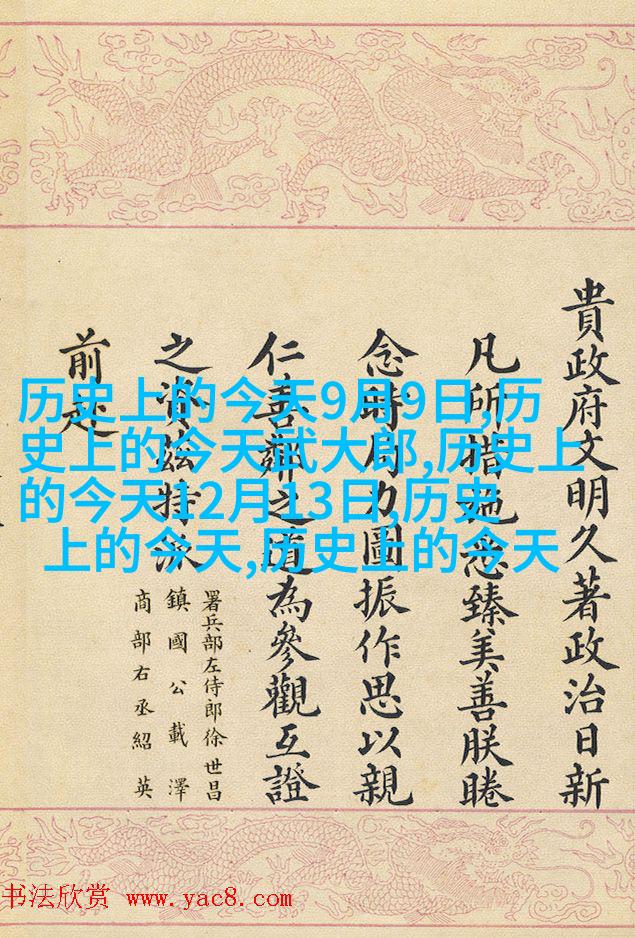 貴政府文明久著政治日新
凡所措施悉臻美善朕睠
念時局力圖振作思以親
仁善鄰之道為參觀互證
之資茲特派
署兵部左侍郎徐世昌
鎮國公載澤
商部右丞紹英
前赴
历史上的今天9月9日,历
史上的今天武大郎,历史上
的今天12月13日,历史
上的今天,历史上的今天
书法欣赏 www.yac8.com